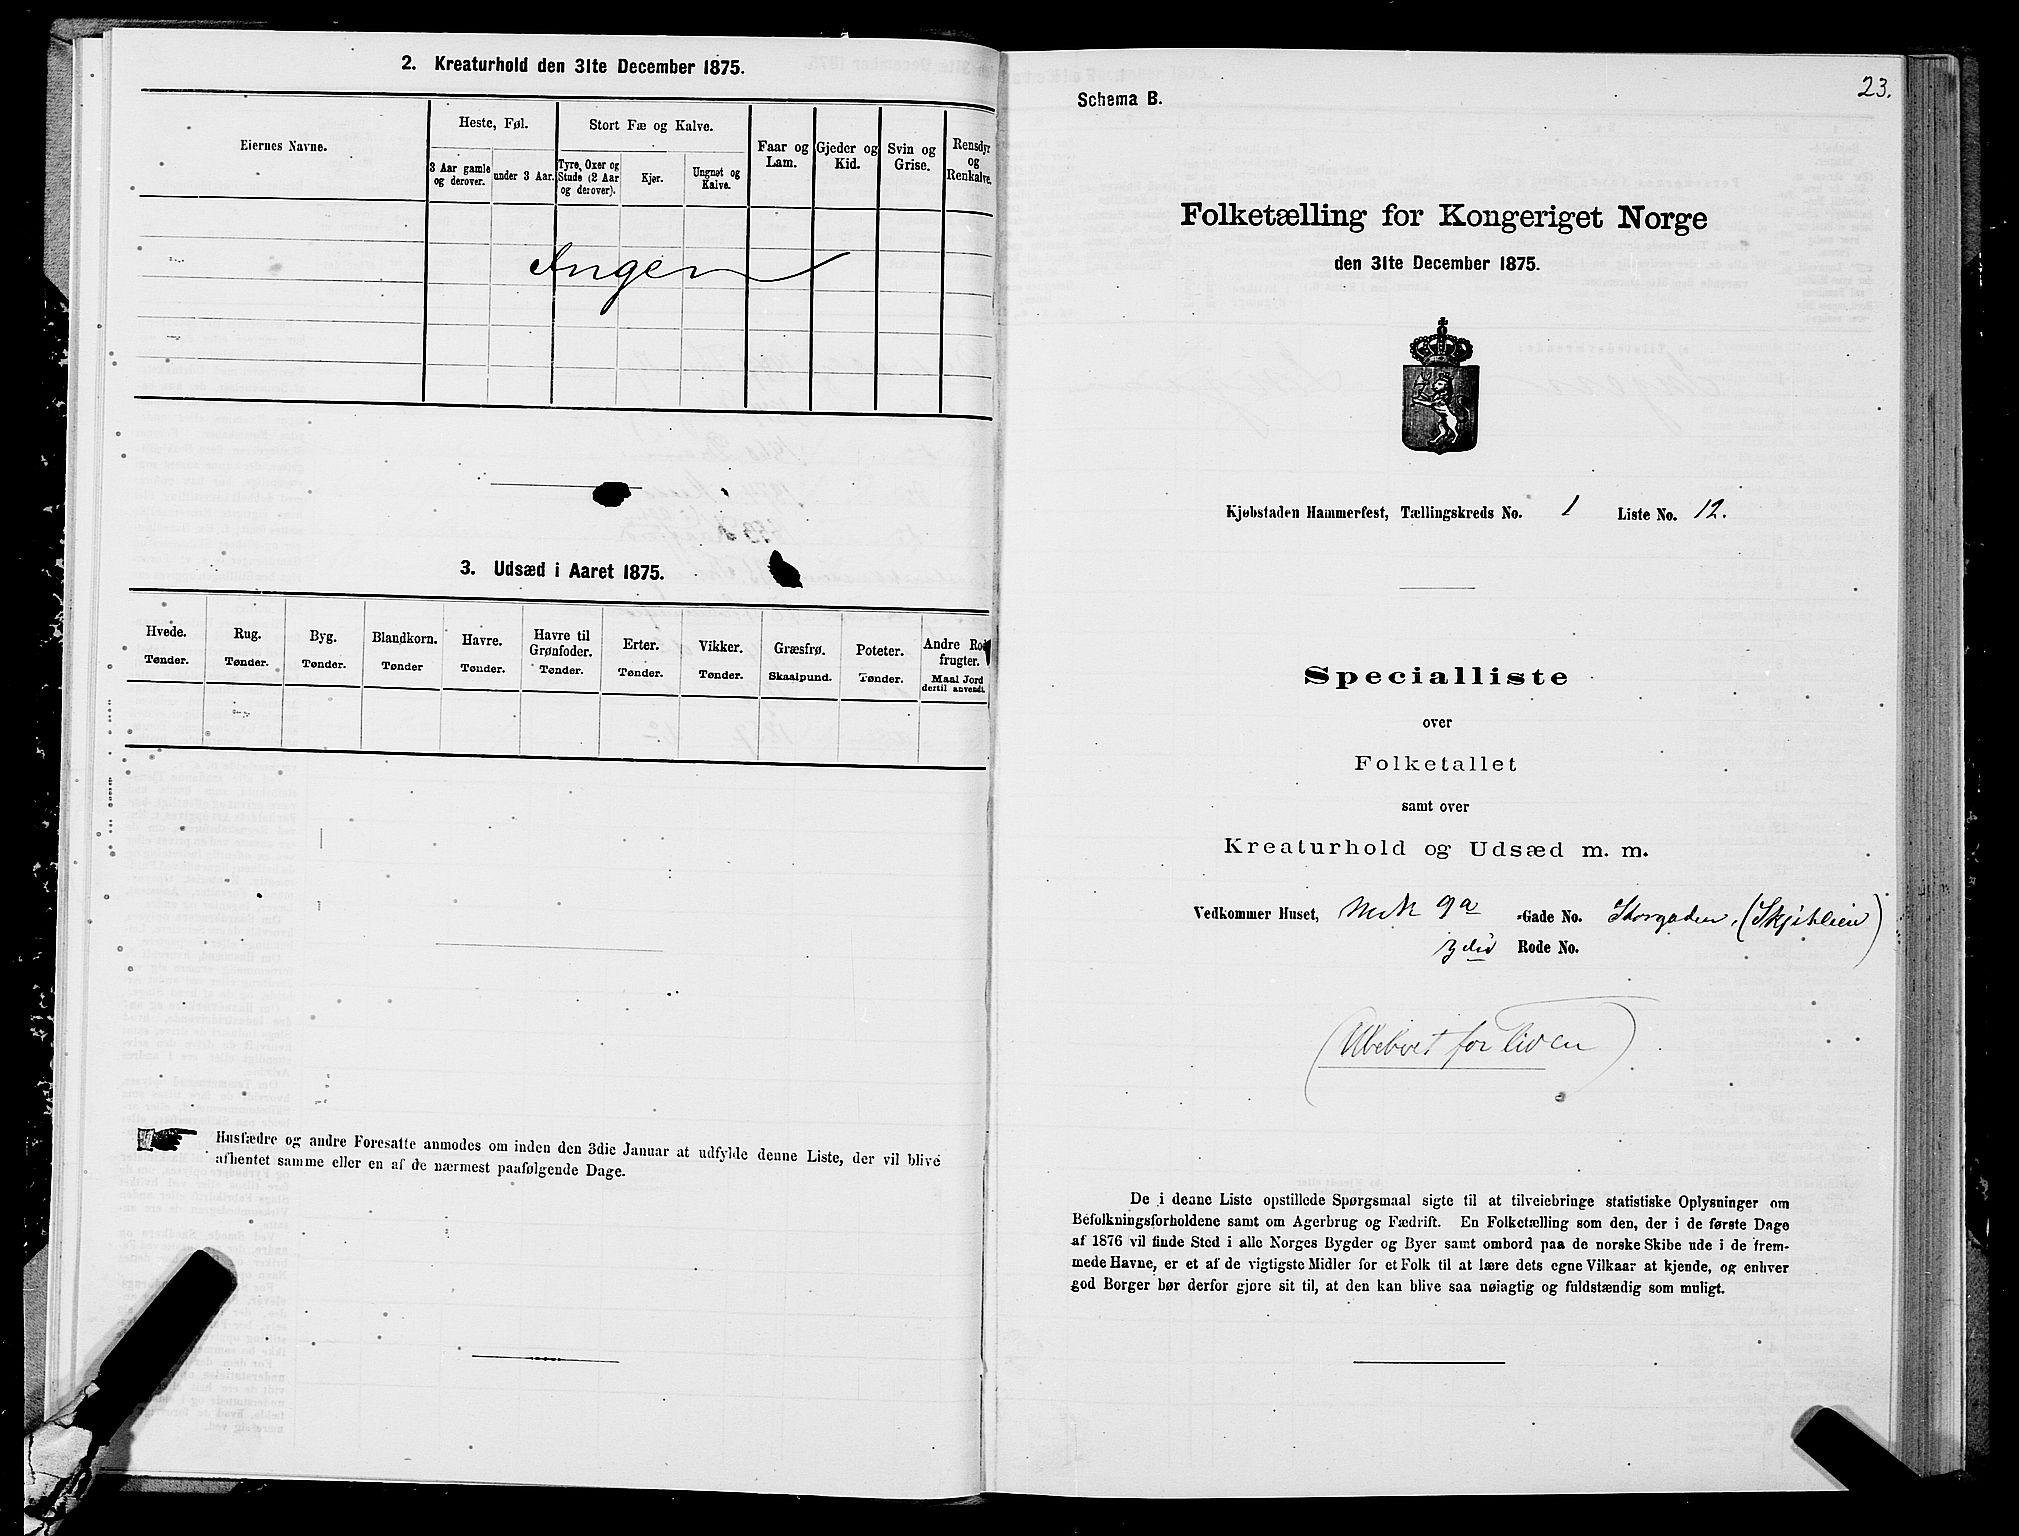 2. Kreaturhold den 31te December 1875.
Eiernes Navne.
Heste, Føl.
Stort Fæ og Kalve.
Faar og Lam.
Gjeder og Kid.
Svin og Grise.
Rensdyr og Renkalve.
3 Aar gamle og derover.
under 3 Aar.
Tyre, Oxer og Stude (2 Aar og derover).
Kjør.
Ungnøt og Kalve.
Ingen
3. Udsæd i Aaret 1875.
Hvede.
Rug.
Byg.
Blandkorn.
Havre.
Havre til Grønfoder.
Erter.
Vikker.
Græsfrø.
Poteter.
Andre Rodfrugter.
Tønder.
Tønder.
Tønder.
Tønder
Tønder.
Tønder.
Tønder.
Tønder.
Skaalpund.
Tønder.
Maal Jord dertil anvendt.
Husfædre og andre Foresatte anmodes om inden den 3die Januar at udfylde denne Liste, der vil blive
afhentet samme eller en af de nærmest paafølgende Dage.
23.
Schema B.
Folketælling for Kongeriget Norge
den 31te December 1875.
Kjøbstaden Hammerfest, Tællingskreds No. 1 Liste No. 12.
Specialliste
over
Folketallet
samt over
Kreaturhold og Udsæd m. m.
Vedkommer Huset, 9a -Gade No. Storgaden,
3die Rode No.
(Ubeboet for Tiden)
De i denne Liste opstillede Spørgsmaal sigte til at tilveiebringe statistiske Oplysninger om
Befolkningsforholdene samt om Agerbrug og Fædrift. En Folketælling som den, der i de første Dage
af 1876 vil finde Sted i alle Norges Bygder og Byer samt ombord paa de norske Skibe ude i de frem-
mede Havne, er et af de vigtigste Midler for et Folk til at lære dets egne Vilkaar at kjende, og enhver
god Borger bør derfor gjøre sit til, at den kan blive saa nøiagtig og fuldstændig som muligt.